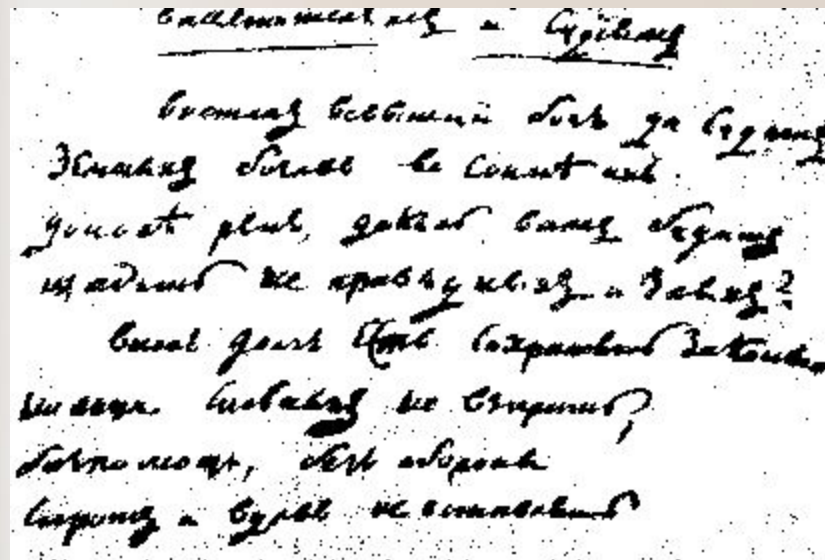 Властителямъ и Судіямъ
Восталъ всевышній богъ да судитъ
Земныхъ боговъ во сонмѣ ихъ.
доколѣ рекъ, доколь вамъ будетъ
щадить неправедныхъ и злыхъ?
Вашъ долгъ есть сохранять законы
На лица Сильныхъ не взирать,
безъ помощи, безъ обороны
Сиротъ и вдовъ не оставлять